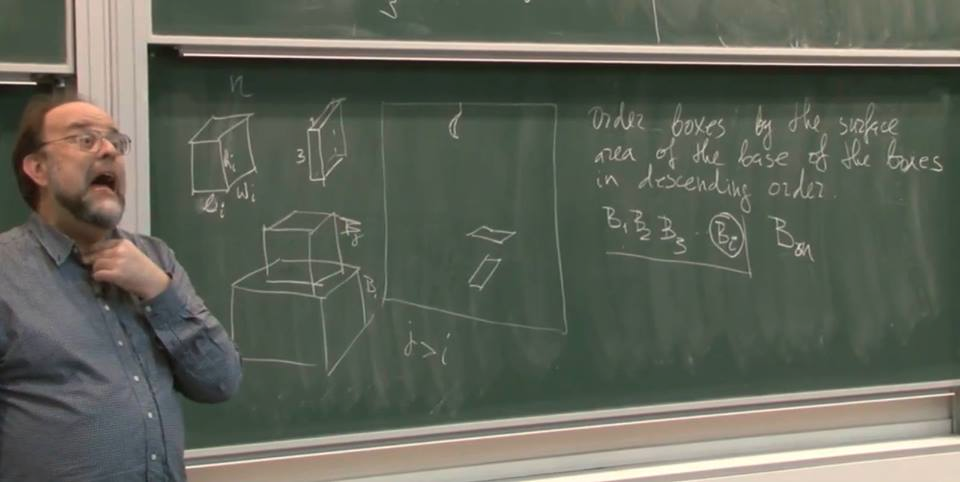 n
h_i
l_i
w_i
3
B_j
B_i
j > i
order boxes by the surface
area of the base of the boxes
in descending order.
B_1 B_2 B_3 .. B_i B_3n